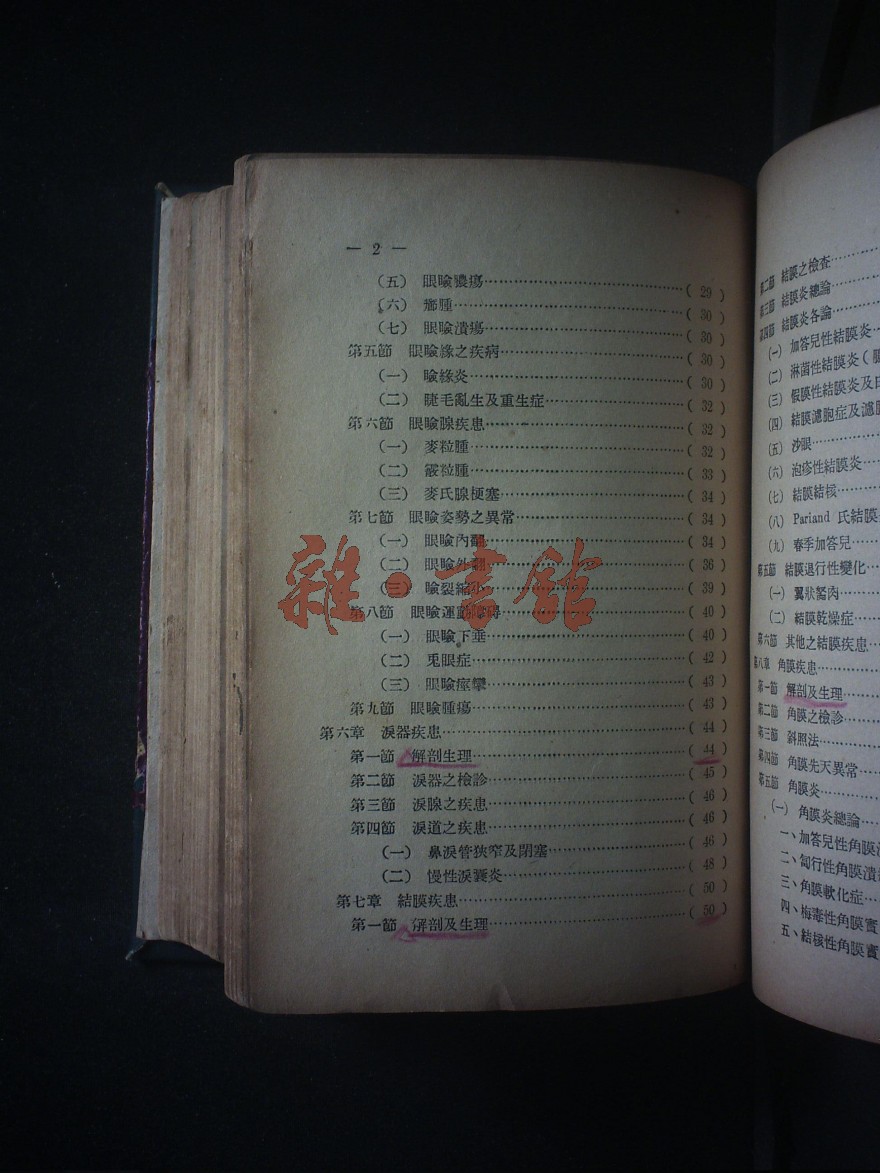 — 2 —
（五） 眼瞼膿瘍……( 29 )
（六） 癤腫……( 30 )
（七） 眼瞼潰瘍……( 30 )
第五節 眼瞼緣之疾病……( 30 )
（一） 瞼緣炎……( 30 )
（二） 睫毛亂生及重生症……( 32 )
第六節 眼瞼腺疾患……( 32 )
（一） 麥粒腫……( 32 )
（二） 霰粒腫……( 33 )
（三） 麥氏腺梗塞……( 34 )
第七節 眼瞼姿勢之異常……( 34 )
（一） 眼瞼內翻……( 34 )
（二） 眼瞼外翻……( 36 )
（三） 瞼裂縮小……( 39 )
第八節 眼瞼運動障碍……( 40 )
（一） 眼瞼下垂……( 40 )
（二） 兎眼症……( 42 )
（三） 眼瞼痙攣……( 43 )
第九節 眼瞼腫瘍……( 43 )
第六章 淚器疾患……( 44 )
第一節 解剖生理……( 44 )
第二節 淚器之檢診……( 45 )
第三節 淚腺之疾患……( 46 )
第四節 淚道之疾患……( 46 )
（一） 鼻淚管狹窄及閉塞……( 46 )
（二） 慢性淚囊炎……( 48 )
第七章 結膜疾患……( 50 )
第一節 解剖及生理……( 50 )
雜·書館
第二節 結膜之檢查……
第三節 結膜炎總論……
第四節 結膜炎各論……
（一） 加答兒性結膜炎…
（二） 淋菌性結膜炎（
（三） 假膜性結膜炎及
（四） 結膜濾胞症及濾
（五） 沙眼……
（六） 泡疹性結膜炎…
（七） 結膜結核……
（八） Pariand 氏結膜
（九） 春季加答兒……
第五節 結膜退行性變化…
（一） 翼狀豁肉……
（二） 結膜乾燥症……
第六節 其他之結膜疾患…
第八章 角膜疾患……
第一節 解剖及生理……
第二節 角膜之檢診……
第三節 斜照法……
第四節 角膜先天異常……
第五節 角膜炎……
（一） 角膜炎總論……
一、加答兒性角膜
二、匐行性角膜潰
三、角膜軟化症…
四、梅毒性角膜實
五、結核性角膜實